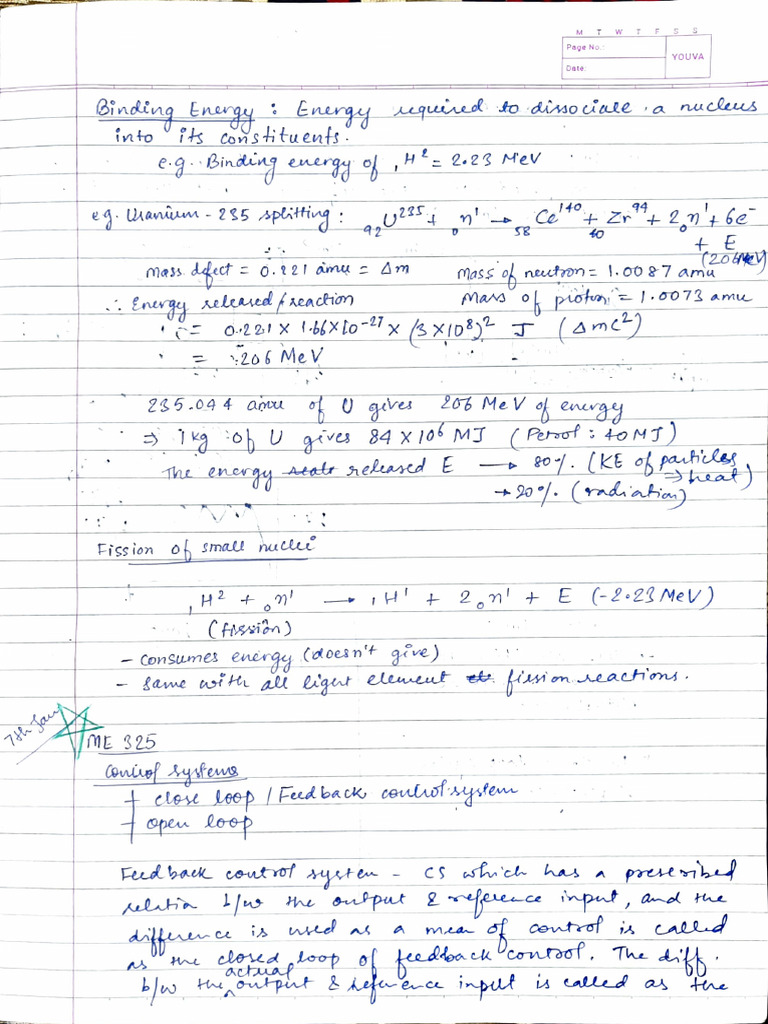 M T W T F S S
Page No.:
YOUVA
Date:
Binding Energy : Energy required to dissociate a nucleus
into its constituents.
e.g. Binding energy of ₁H² = 2.23 MeV
e.g. Uranium-235 splitting : ₉₂U²³⁵ + ₀n¹ → ₅₈Ce¹⁴⁰ + ₄₀Zr⁹⁴ + 2₀n¹ + 6e⁻
+ E
(206 MeV)
mass defect = 0.221 amu = Δm Mass of neutron = 1.0087 amu
∴ Energy released/reaction Mass of proton = 1.0073 amu
= 0.221 × 1.66×10⁻²⁷ × (3×10⁸)² J (Δmc²)
= 206 MeV
235.044 amu of U gives 206 MeV of energy
⇒ 1 kg of U gives 84 × 10⁶ MJ (Petrol : 40 MJ)
The energy released E → 80%. (KE of particles
⇒ heat)
→ 20%. (radiation)
Fission of small nuclei
₁H² + ₀n¹ → ₁H¹ + 2₀n¹ + E (-2.23 MeV)
(fission)
- consumes energy (doesn't give)
- same with all light element fission reactions.
7th Jan
ME 325
Control systems
close loop / Feedback control system
open loop
Feedback control system - CS which has a prescribed
relatio b/w the output & reference input, and the
difference is used as a mean of control is called
as the closed loop of feedback control. The diff.
b/w the actual output & reference input is called as the